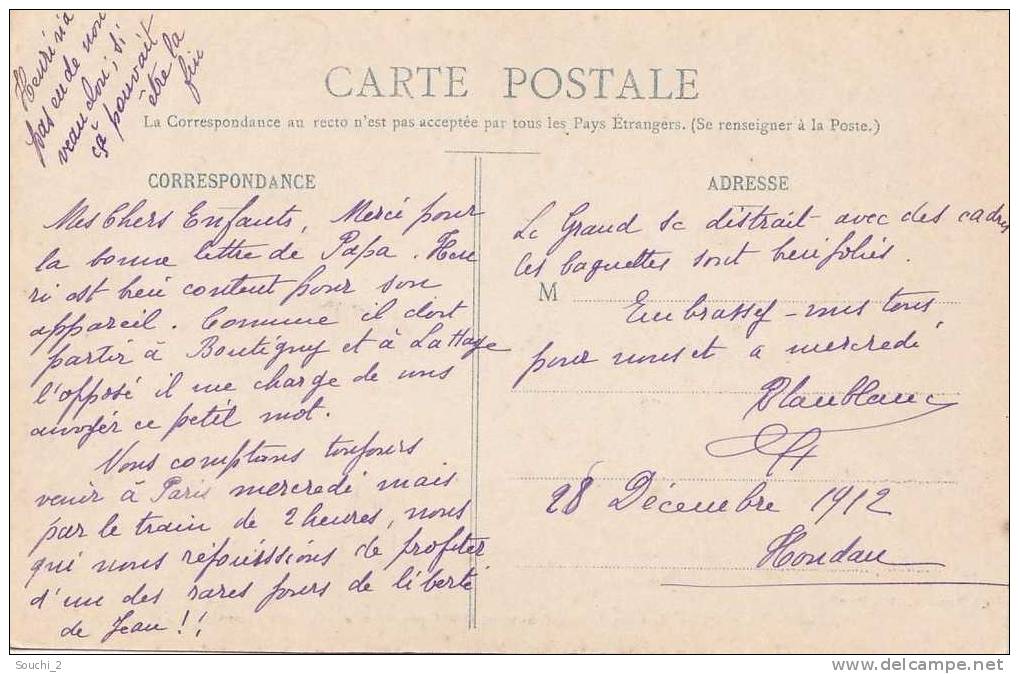 Henri n'a
pas eu de nou
veau clou, si
çà pouvait
être la
fin
CARTE POSTALE
La Correspondance au recto n'est pas acceptée par tous les Pays Étrangers. (Se renseigner à la Poste.)
CORRESPONDANCE
Mes Chers Enfants, Merci pour
la bonne lettre de Papa. Hen
ri est bien content pour son
appareil. Comme il doit
partir à Boutigny et à La Haye
l'opposé il me charge de vous
envoyer ce petit mot.
Nous comptons toujours
venir à Paris mercredi mais
par le train de 2 heures, nous
qui nous réjouissions de profiter
d'un des rares jours de liberté
de Jean!!
ADRESSE
Le Grand se distrait avec des cadres
les baguettes sont bien jolies.
M
Embrassez-vous tous
pour nous et a mercredi
Blanblanc
28 Décembre 1912
Houdan
Souchi_2
http://www.delcampe.net